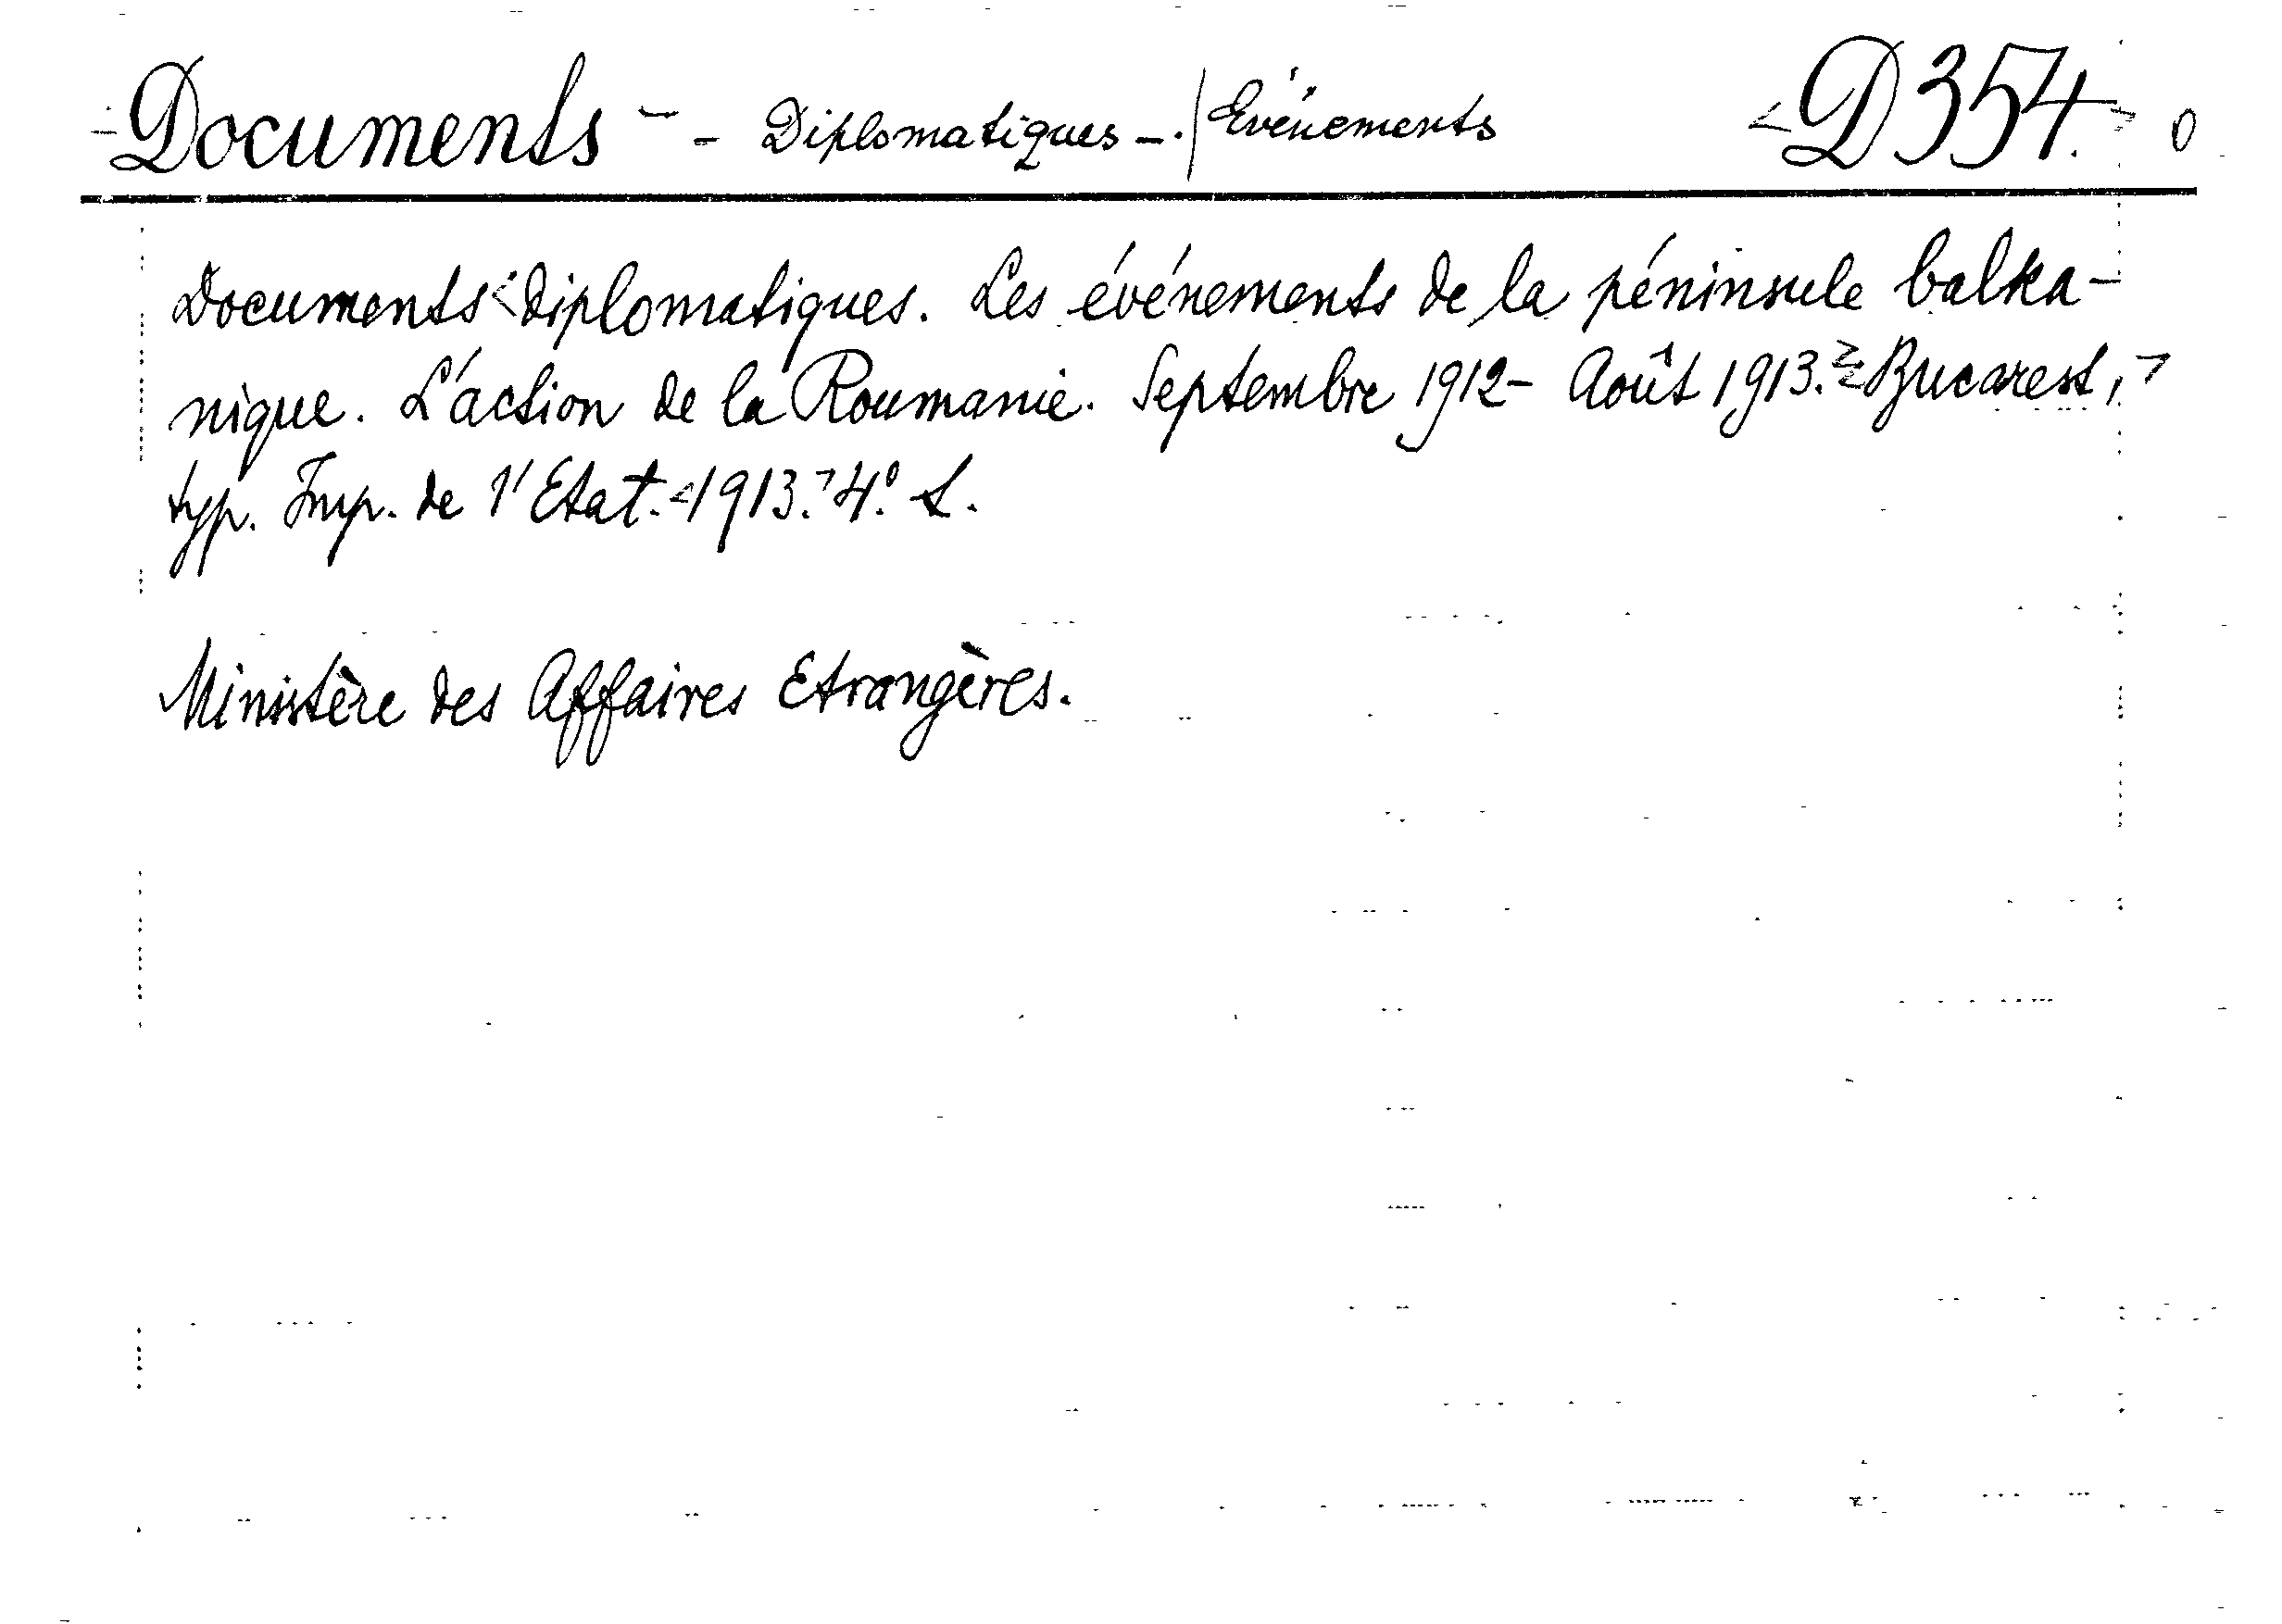 Documents - - Diplomatiques -. / Evénements D354. 0
Documents diplomatiques. Les événements de la péninsule balka-
nique. L'action de la Roumanie. Septembre 1912 - Août 1913. Bucarest,
typ. Imp. de l'Etat. 1913. 4.º L.
Ministère des Affaires Etrangères.